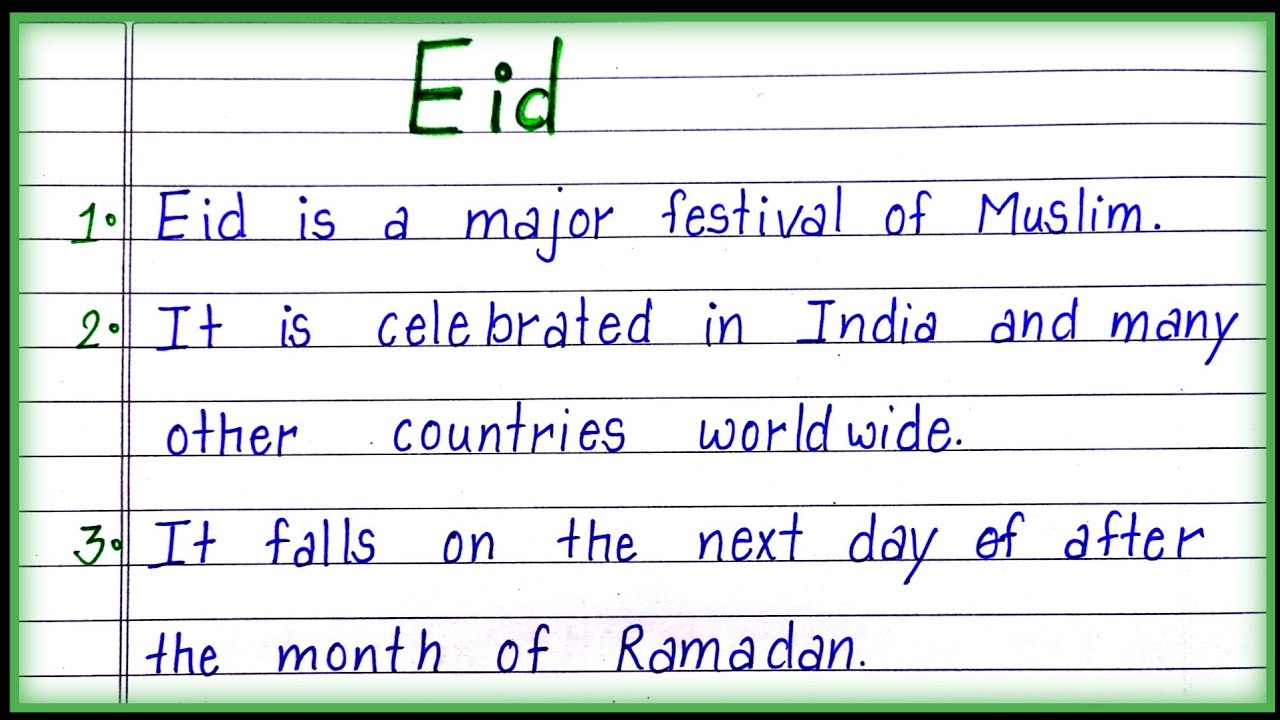 Eid
1. Eid is a major festival of Muslim.
2. It is celebrated in India and many
other countries worldwide.
3. It falls on the next day of after
the month of Ramadan.